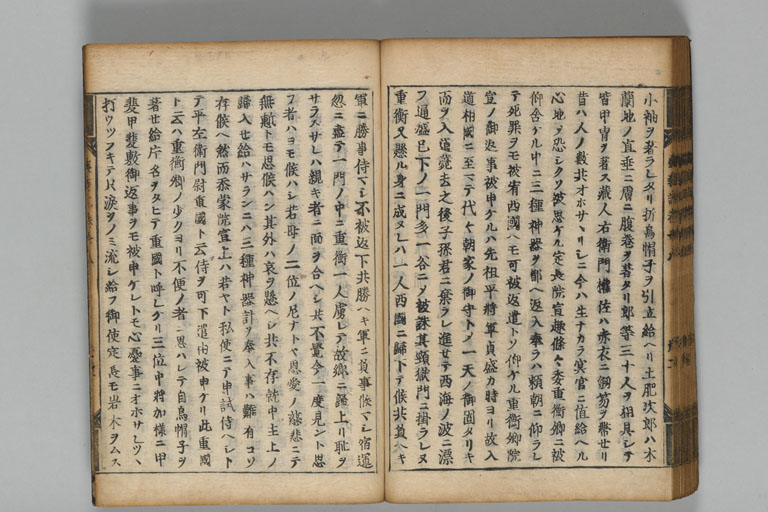 小袖ヲ著ラレタリ折烏帽子ヲ引立給ヘリ土肥次郎ハ木
蘭地ノ直垂ニ層ニ腹巻ヲ著タリ郎等三十人ヲ相具シテ
皆甲冑ヲ著ス蔵人右衛門権佐ハ赤衣ニ劔笏ヲ帯セリ
昔ハ人ノ数共オホサヾリシニ今ハ生ナカラ冥官ニ値給ヘル
心地ソ恐シクソ被思ケル定長院宣趣條々委重衡卿ニ被
仰含ケル中ニ三種神器ヲ都ヘ返入奉ラハ頼朝ニ仰ラレ
テ死罪ヲモ被宥西國ヘモ可被返遣トソ仰ケル重衡卿院
宣ノ御返事被申ケルハ先祖平將軍貞盛カ時ヨリ故入
道相國ニ至マテ代々朝家ノ御守トノ一天ノ御固タリキ
而ヲ入道薨去之後子孫君ニ棄ラレ進セテ西海ノ波ニ漂
フ通盛已下ノ一門多一谷ニノ被誅其頸獄門ニ掛ラレヌ
重衡又懸ル身ニ成ヌレハ一人西國ニ歸下テ候共負ヘキ
軍ニ勝事侍マシ不被返下共勝ヘキ軍ニ負事候マシ宿運
忽ニ盡テ一門ノ中ニ重衡一人虜レテ故郷ニ歸上リ恥ヲ
サラスサレハ親キ者ニ面ヲ合ヘシ共不覺今一度見ント思
フ者ハヨモ候ハシ若母ノ二位ノ尼ナトヤ恩愛ノ慈悲ニテ
無慙トモ思候ハン其外ハ哀ヲ懸ヘシ共不存就中主上ノ
歸入セ給ハサランニハ三種神器計ヲ奉入事ハ難有コソ
存候ヘ然而忝蒙院宣上ハ若ヤト私使ニテ申試侍ヘシト
テ平左衛門尉重國ト云侍ヲ可下遣由被申ケリ此重國
ト云ハ重衡卿ノ少クヨリ不便ノ者ニ思ハレテ自烏帽子ヲ
著セ給片名ヲタヒテ重國ト呼レケリ三位中將加樣ニ甲
斐甲斐敷御返事ヲモ被申ケレトモ心憂事ニオホサレツヽ
打ウツフキテ只涙ヲノミ流シ給フ御使定長モ岩木ヲムス